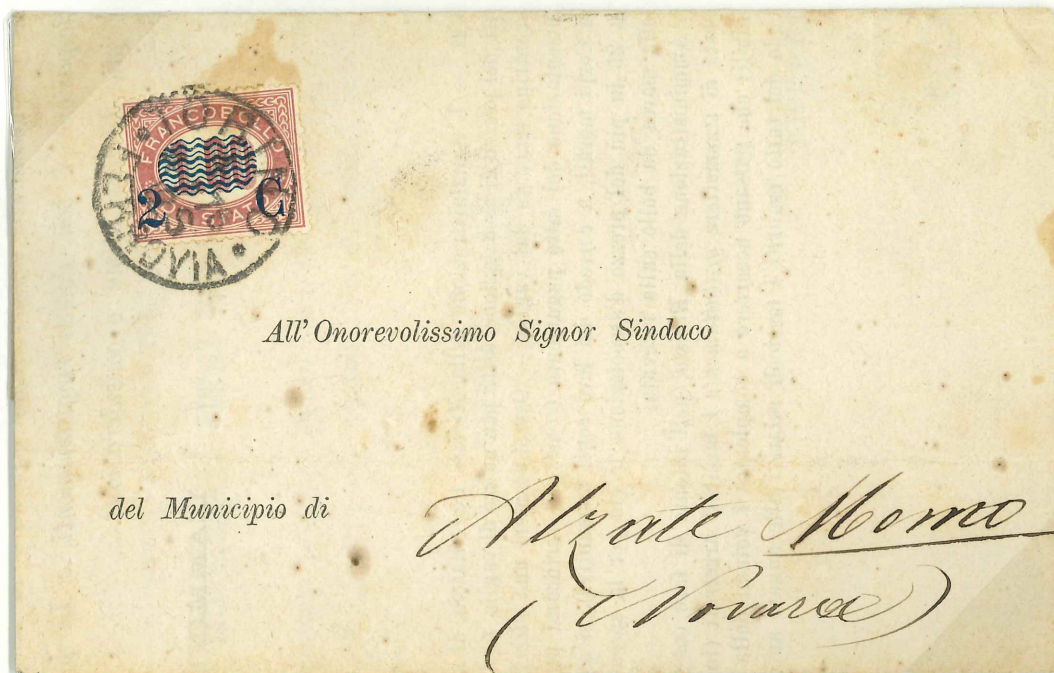 FRANCOBOLLO
2 C
DI STATO
TORINO
All' Onorevolissimo Signor Sindaco
del Municipio di
Alzate Momo
(Novara)